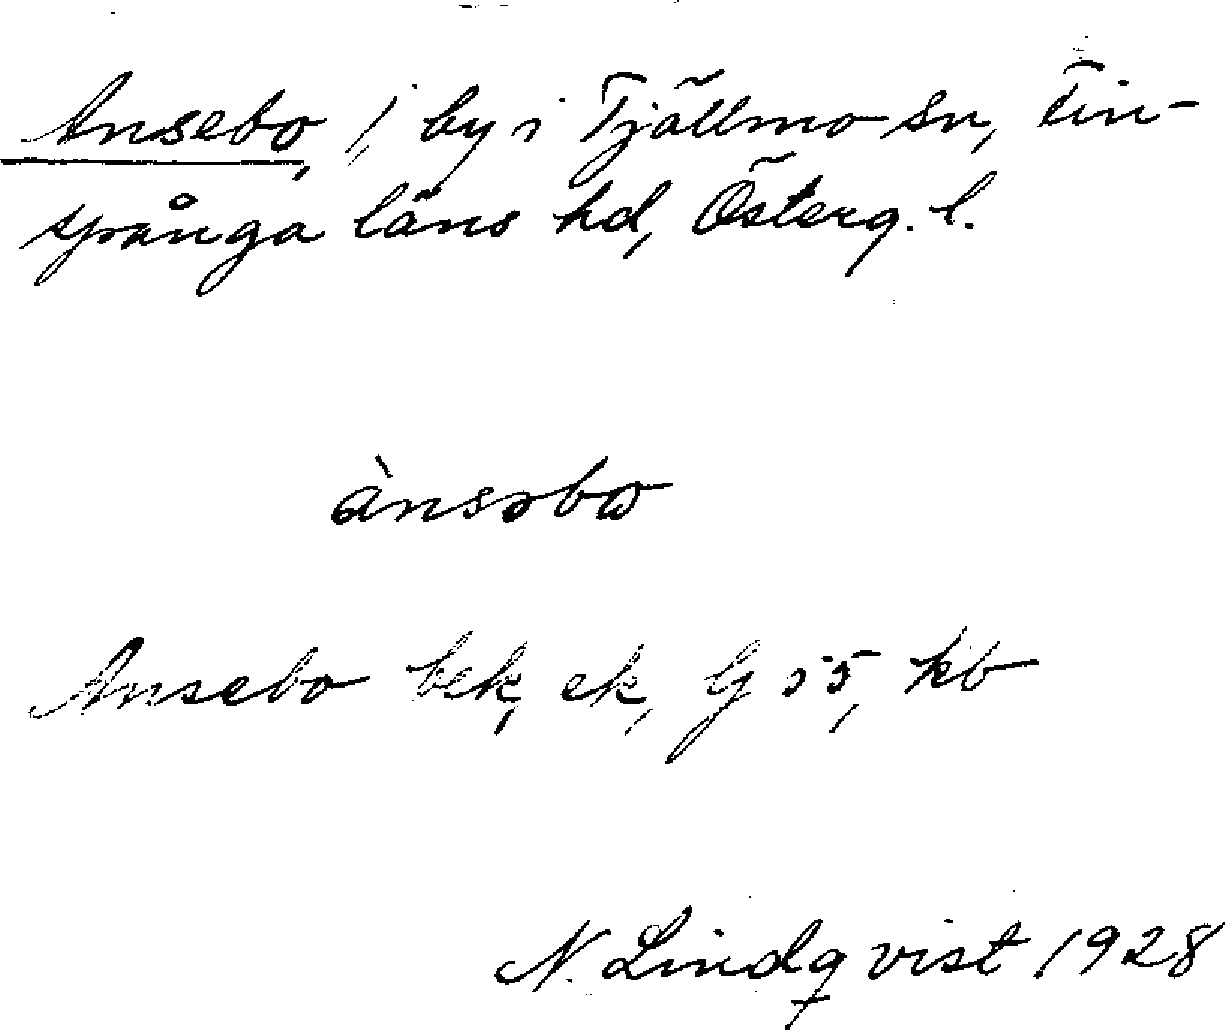 Ansebo, 1, by i Tjällmo sn, Fin-
spånga läns hd, Österg. l.
ànsəbω
Ansebo bek, ek, G 55, kb
N. Lindqvist 1928